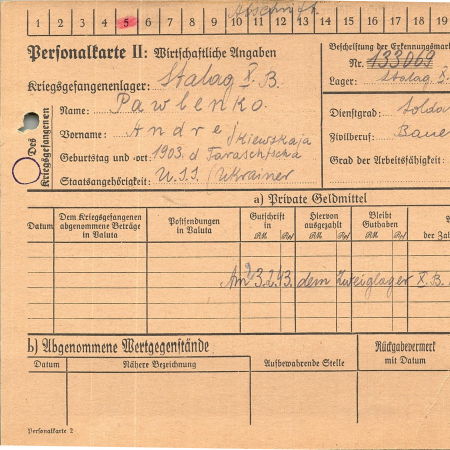 Abschrift
1 2 3 4 5 6 7 8 9 10 11 12 13 14 15 16 17 18 19
Personalkarte II: Wirtschaftliche Angaben
Beschriftung der Erkennungsmark
Nr. 133069
Kriegsgefangenenlager: Stalag X. B.
Lager: Stalag X.
Des Kriegsgefangenen
Name: Pawlenko.
Vorname: Andre /Kiewskaja
Geburtstag und -ort: 1903. d Taraschtscha
Staatsangehörigkeit: U.S.S. /Ukrainer
Dienstgrad: Solda
Zivilberuf: Baue
Grad der Arbeitsfähigkeit:
a) Private Geldmittel
Datum
Dem Kriegsgefangenen abgenommene Beträge in Valuta
Postsendungen in Valuta
Gutschrift in
RM. Rpf
Hiervon ausgezahlt
RM. Rpf
Bleibt Guthaben
RM. Rpf
der Zah
Am 23.2.43. dem Zweiglager X. B.
b) Abgenommene Wertgegenstände
Datum
Nähere Bezeichnung
Aufbewahrende Stelle
Rückgabevermerk mit Datum
Personalkarte 2